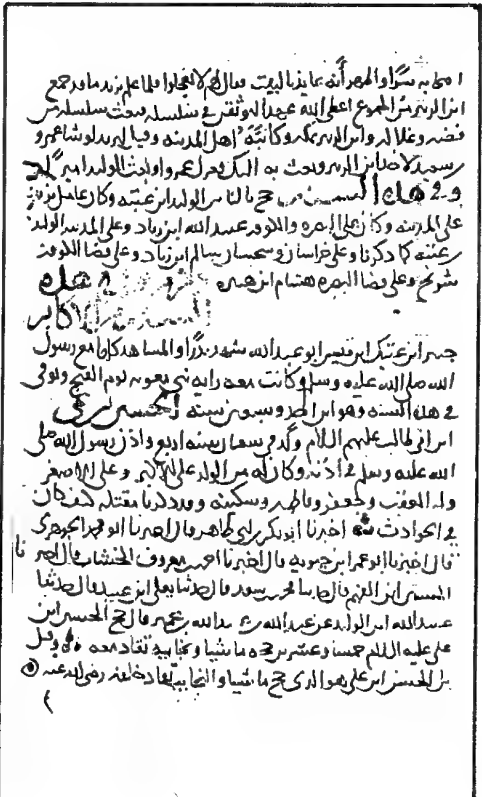 اصحابه سرا واظهر أنه عايذ بالبيت وقال لهم لا تعجلوا فلما علم يزيد ما قد جمع
ابن الزبير من الجموع اعطى الله عهدا ليوثقن في سلسله فبعث سلسله من
فضه وغلا له وابن الزبير بمكه وكاتبه اهل المدينه وقيل ليزيد لو شا عمرو
بن سعيد لاخذ ابن الزبير وبعث به اليك فعزل عمرا وولى الوليد اميرا
وفي هذه السنه حج بالناس الوليد ابن عتبه وكان عامل يزيد
على المدينه وكان على البصره والكوفه عبيد الله ابن زياد وعلى المدينه الوليد
بن عتبه كما ذكرنا وعلى خراسان وسجستان سالم ابن زياد وعلى قضا الكوفه
شريح وعلى قضا البصره هشام ابن هبيره ذكر من توفي في هذه
السنه من الاكابر
جبر ابن عتيك ابن قيس ابو عبد الله شهد بدرا والمشاهد كلها مع رسول
الله صلى الله عليه وسلم وكانت معه رايه بني معويه يوم الفتح وتوفي
في هذه السنه وهو ابن احد وسبعين سنه الحسين بن علي
ابن ابي طالب عليهم السلام ولد في شعبان سنه اربع واذن رسول الله صلى
الله عليه وسلم في اذنه وكان له من الولد علي الاكبر وعلي الاصغر
وله العقب وجعفر وفاطمه وسكينه وقد ذكرنا مقتله كيف كان
في الحوادث اخبرنا ابو بكر بن ابي طاهر قال اخبرنا ابو محمد الجوهري
قال اخبرنا ابو عمر ابن حيويه قال اخبرنا احمد بن معروف الخشاب قال اخبرنا
الحسين ابن الفهم قال حدثنا محمد بن سعد قال حدثنا يعلى ابن عبيد قال حدثنا
عبيد الله ابن الوليد عن عبد الله بن عبيد الله بن عمير قال حج الحسين ابن
علي عليه السلام خمسا وعشرين حجه ماشيا ونجايبه تقاد معه وقيل
بل الحسن ابن علي هو الذي حج ماشيا والنجايب تقاد خلفه رضي الله عنه